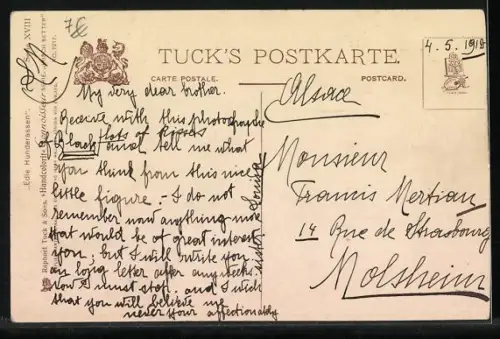 78
4.5.1912
TUCK'S POSTKARTE.
CARTE POSTALE.
POSTCARD.
"Edle Hunderassen".
XVIII
Raphael Tuck & Sons
My very dear brother.
Receive with this photographie
lots of kisses
of Black and tell me what
you think from this nice
little figure. - I do not
remember now anything more
that would be of great interest
you; but I will write you
an long letter after any weeks
now I must stop. and I wish
that you will believe me
never your affectionably
sister Louise
Alsace
Monsieur
Francis Mertian
14 Rue de Strasbourg
Molsheim